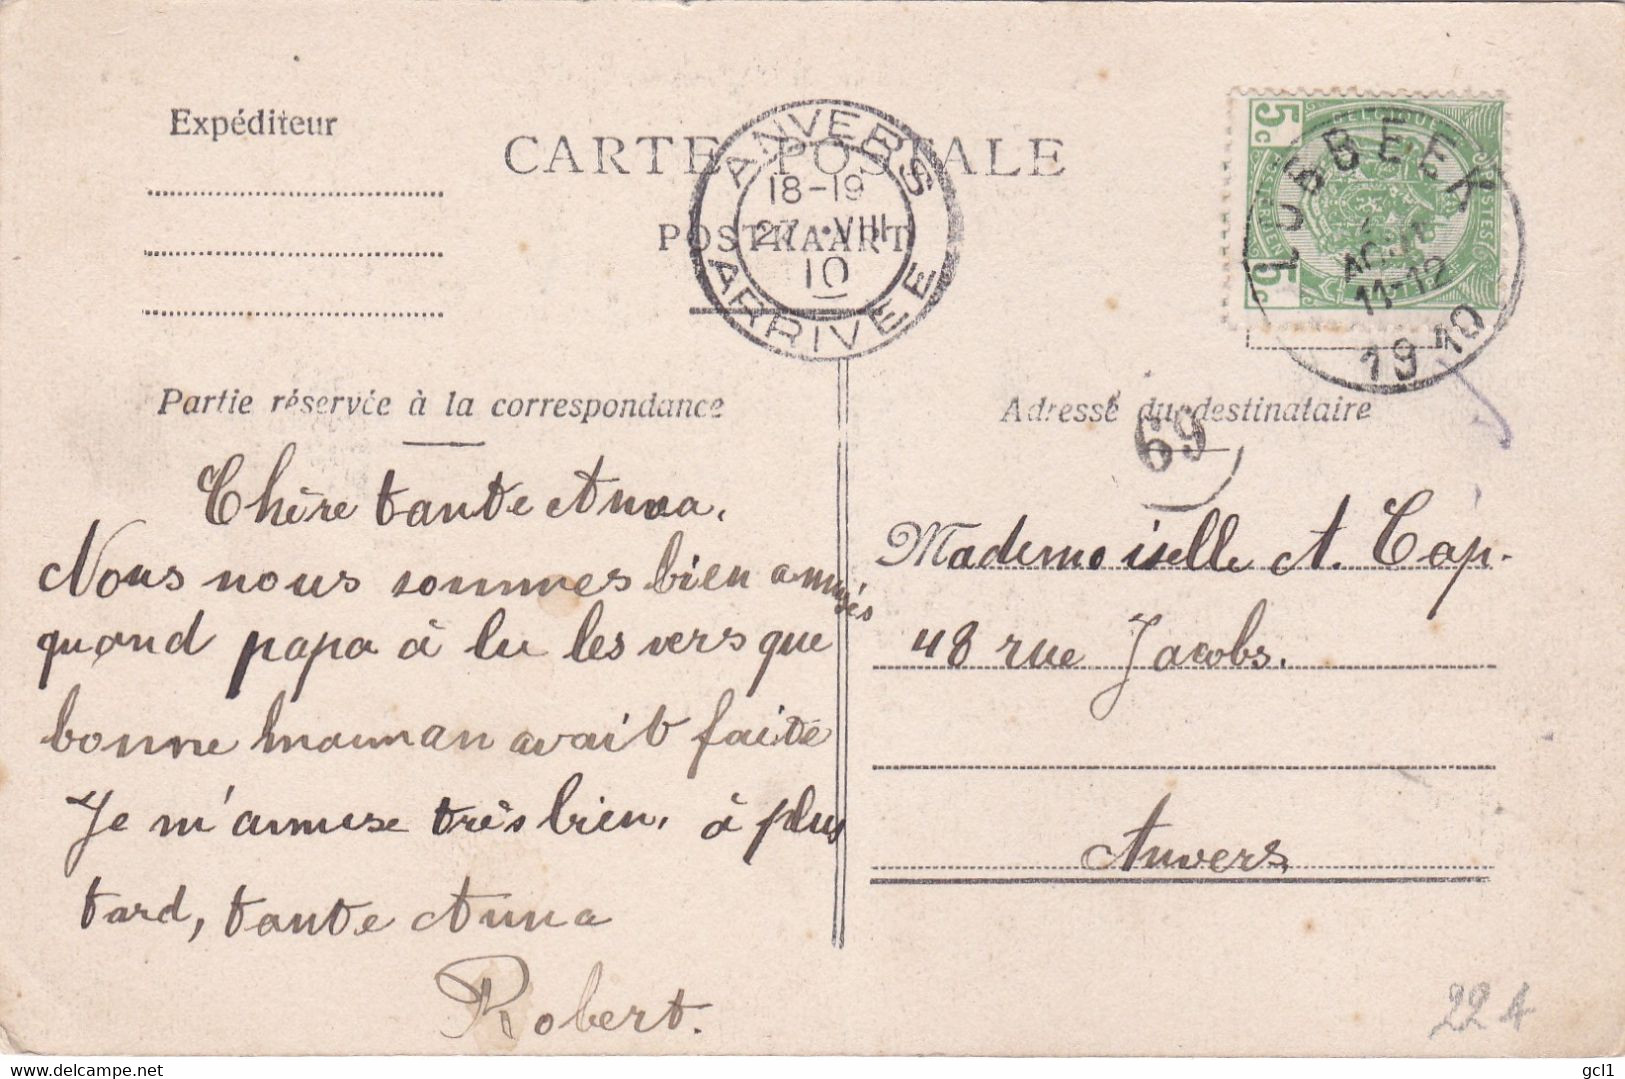 Expéditeur
CARTE POSTALE
POSTKAART
ANVERS
18-19
27 · VIII
10
ARRIVEE
5c
5c
BELGIQUE
POSTES
LUBBEEK
AOUT
11-12
1910
Partie réservée à la correspondance
Adresse du destinataire
69
Chère tante Anna.
Nous nous sommes bien amusés
quand papa à lu les vers que
bonne maman avait faite
Je m'amuse très bien. à plus
tard, tante Anna
Robert.
Mademoiselle A. Cap.
48 rue Jacobs.
Anvers
22A
delcampe.net
gcl1